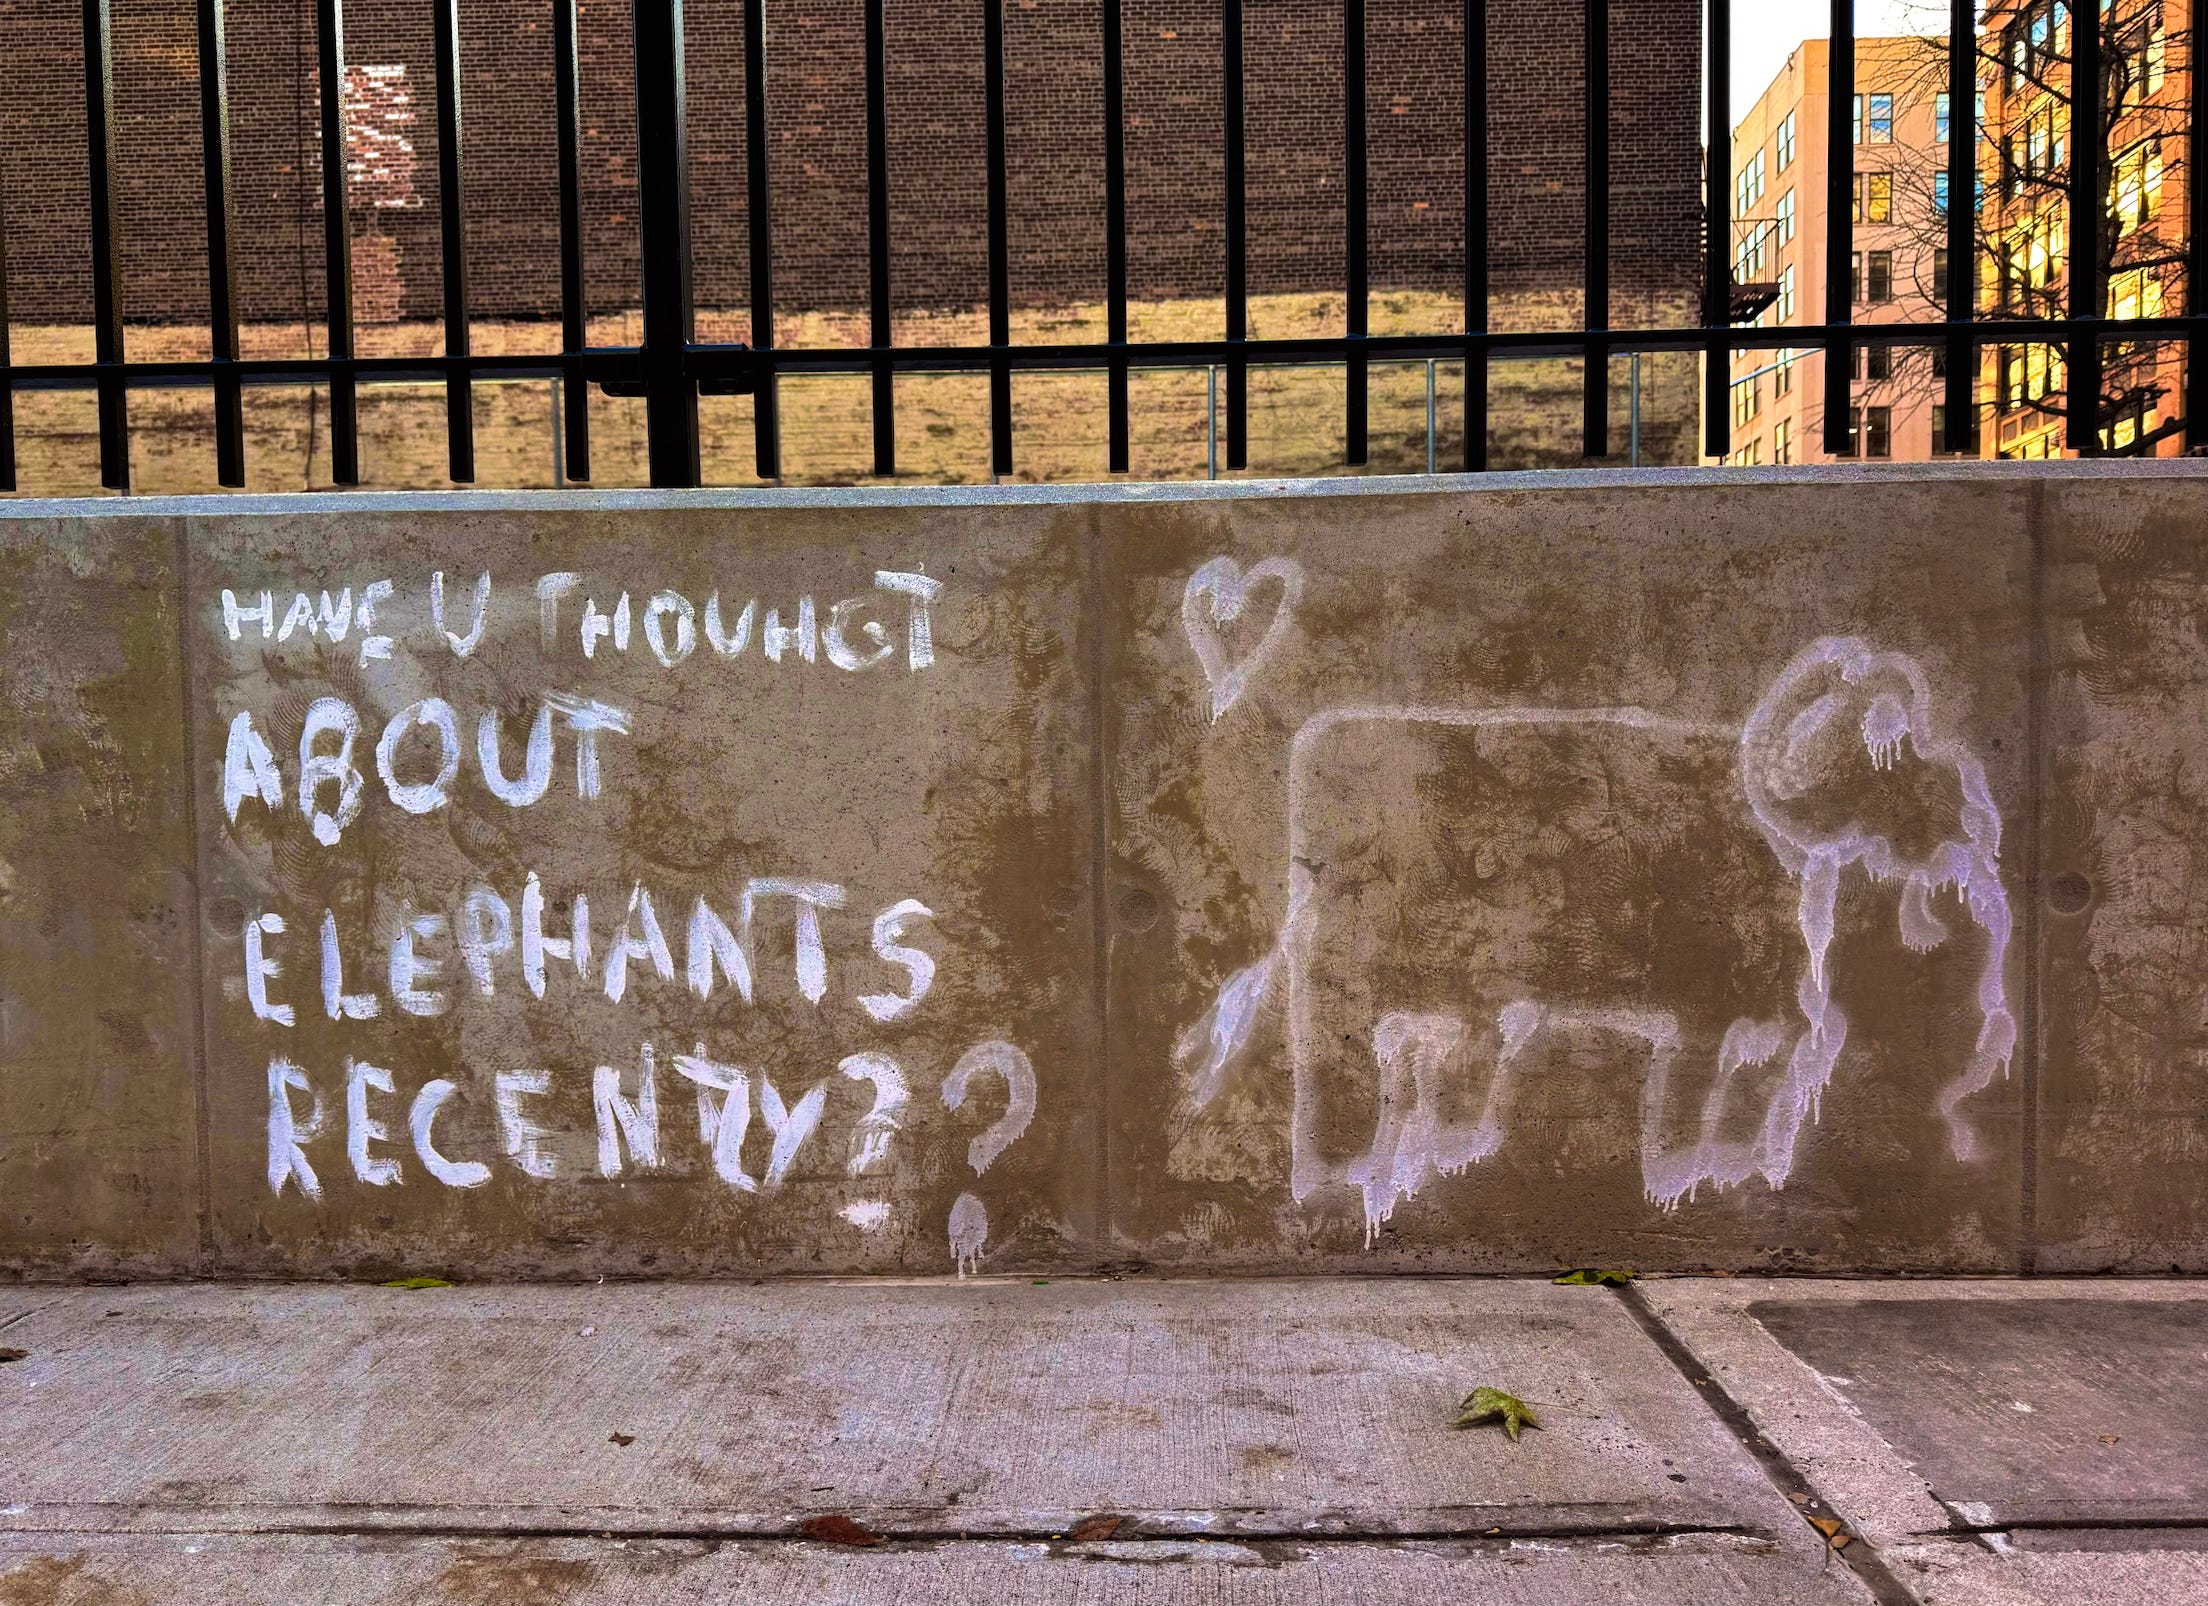 HAVE U THOUHGT
ABOUT
ELEPHANTS
RECENTLY? ?